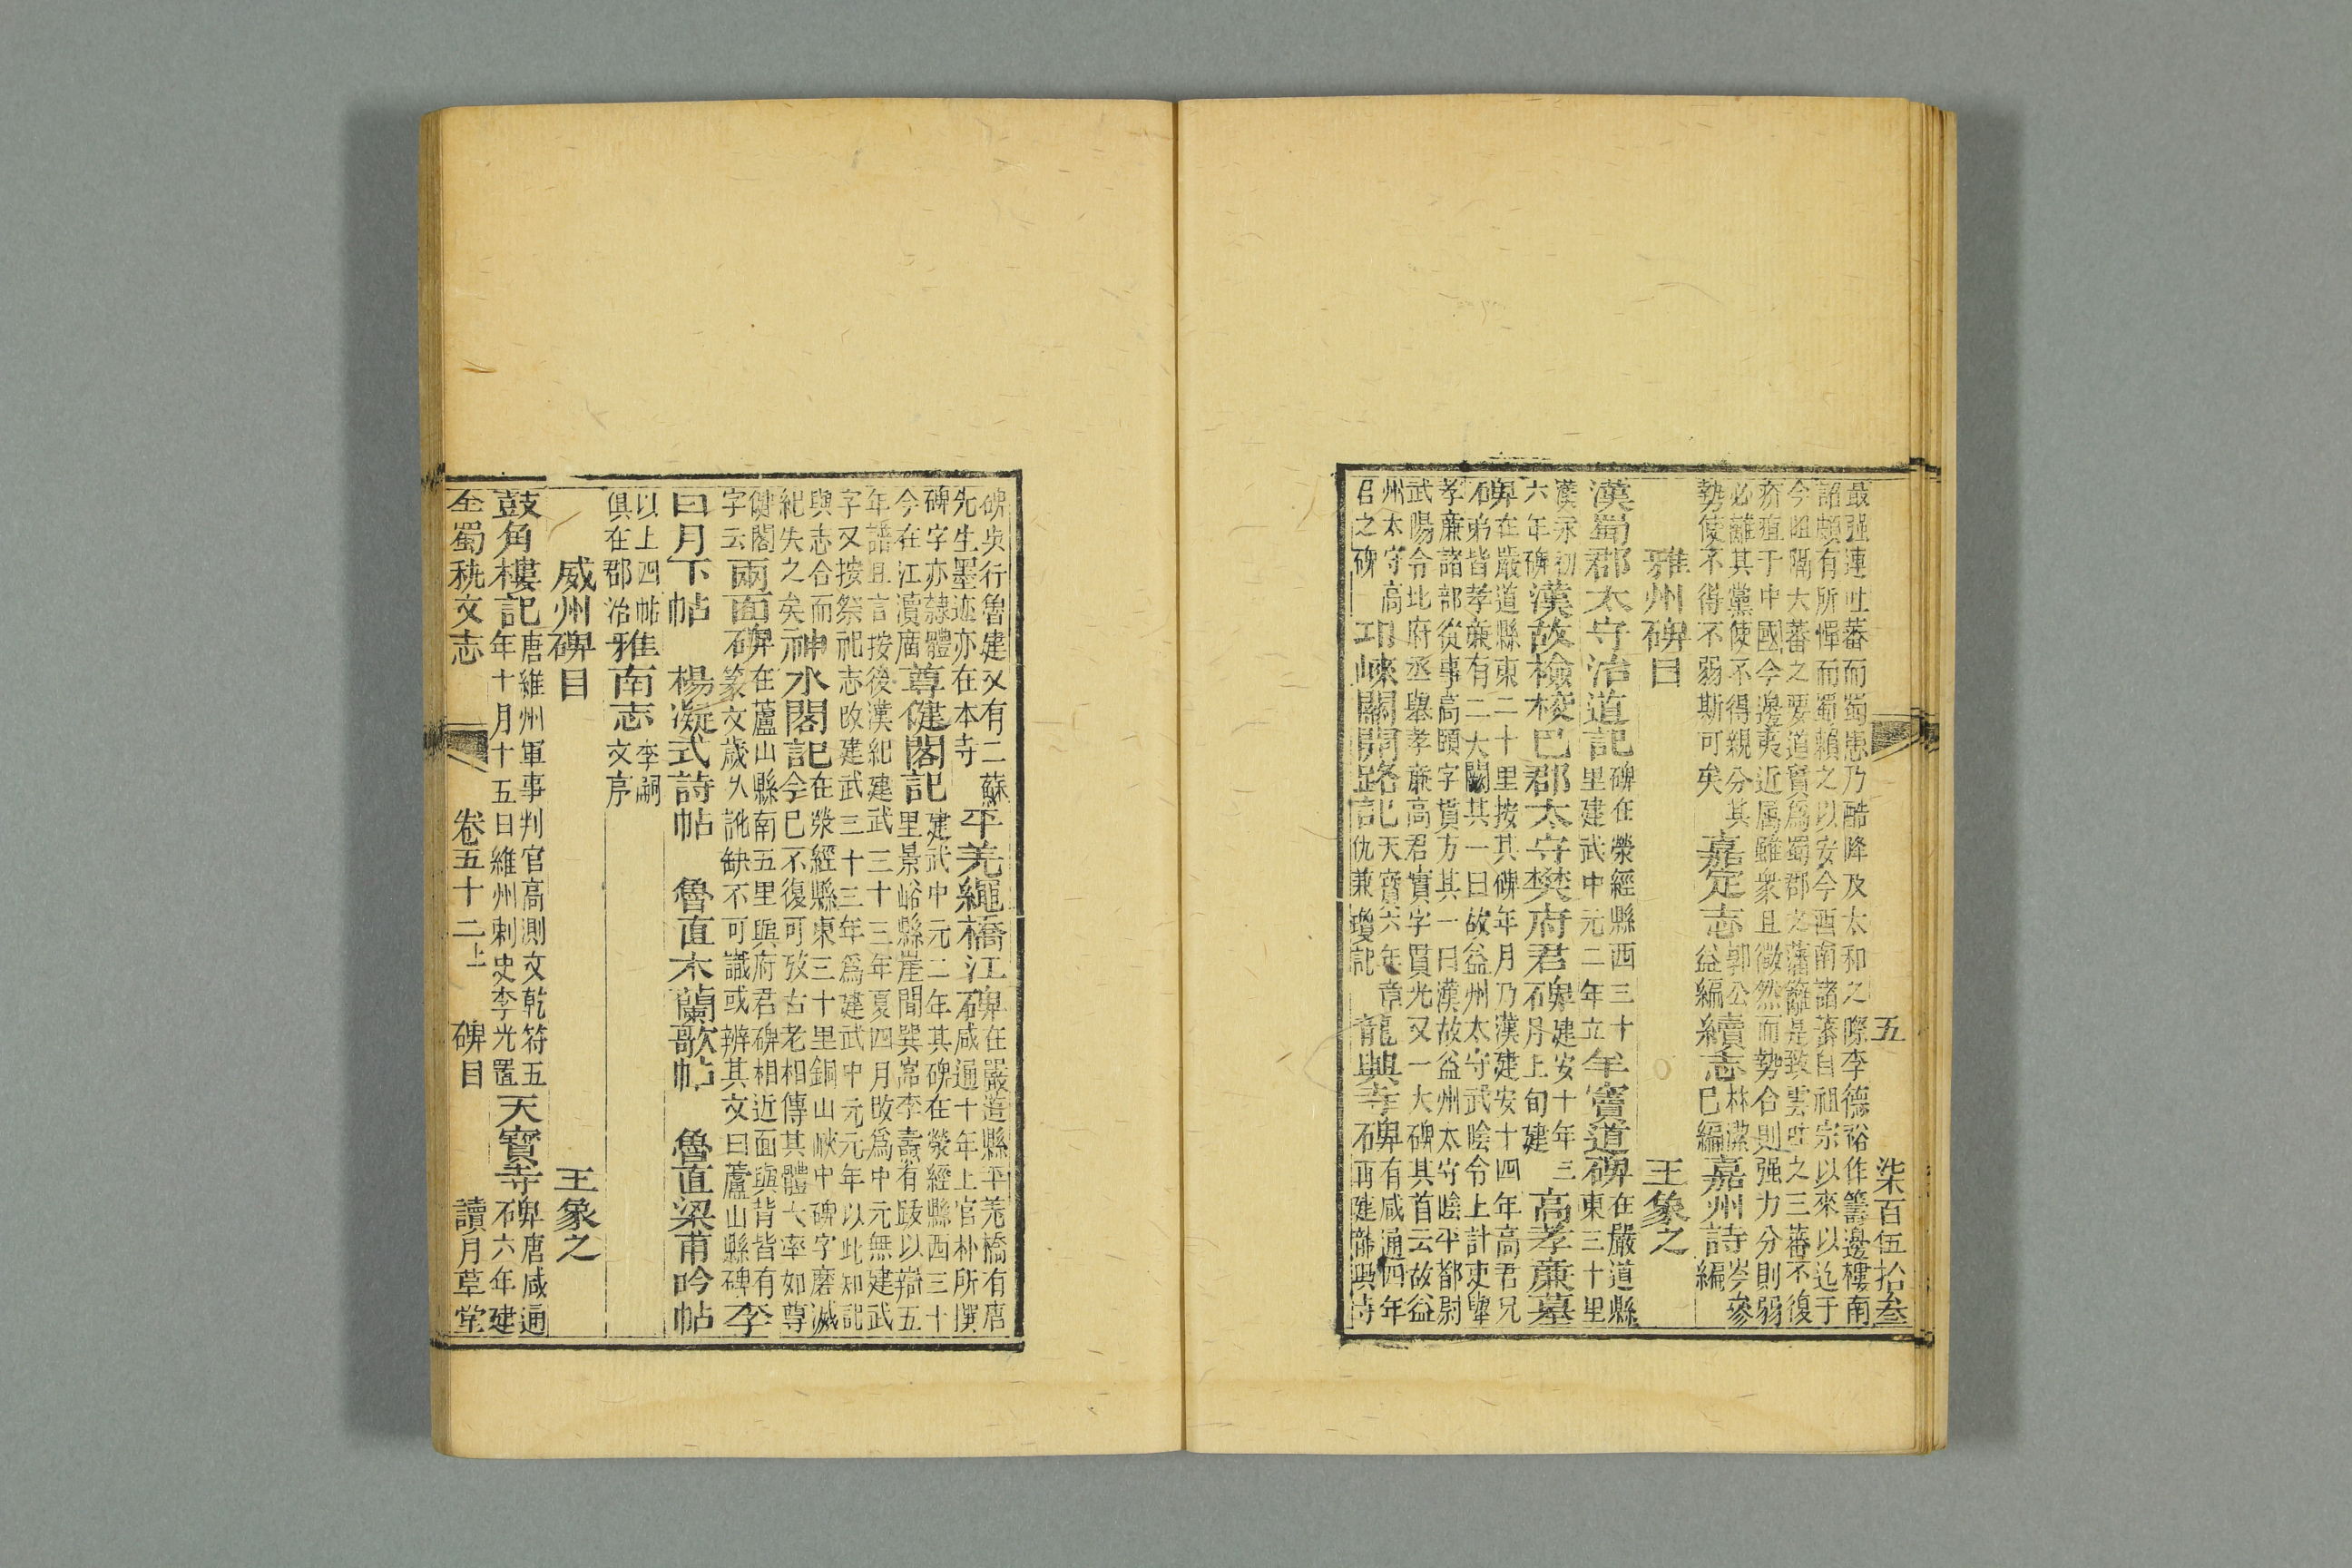 五 柒百伍拾叁
最强連吐蕃而蜀患乃酷降及太和之際李德裕作籌邊樓南
詔頗有所憚而蜀賴之以安今西南諸蕃自祖宗以來以迄于
今阻隔大蕃之要道實爲蜀郡之藩籬是致雲吐之三蕃不復
疥疽于中國今邊夷近属雖衆且微然而勢合則强力分則弱
必離其黨使不得親分其
勢使不得不弱斯可矣 嘉定志郭公益編 續志林㴋已編 嘉州詩岑參編
雅州碑目 王象之
漢蜀郡太守治道記碑在滎經縣西三十里建武中元二年立 羊竇道碑在嚴道縣東三十里
漢永初六年碑 漢故檢校巴郡太守樊府君碑建安十年三月上旬建 高孝廉墓
碑在嚴道縣東二十里按其碑年月乃漢建安十四年高君兄
石弟皆孝廉有二大闕其一曰故益州太守武陰令上計吏舉
孝廉諸部從事高頤字貫方其一曰漢故益州太守陰平都尉
武陽令北府丞舉孝廉高君實字貫光又一大碑其首云故益
州太守高君之碑 邛崍關開路記天寶六年章仇兼瓊記 龍興寺碑有咸通四年石再建龍興寺
碑吳行魯建又有二蘇
先生墨迹亦在本寺 平羌繩橋江碑在嚴道縣平羌橋有唐咸通十年上官朴所撰
碑字亦隷體
今在江瀆廣 尊健閣記建武中元二年其碑在滎經縣西三十里景峪縣崖間巽嵓李燾有跋以辯五
年譜且言按後漢紀建武三十三年夏四月改爲中元無建武
字又按祭祀志改建武三十三年爲建武中元元年以此知記
與志合而
紀失之矣 神水閣記在滎經縣東三十里銅山峽中碑字磨滅今已不復可攷古老相傳其體大率如尊
健閣
字云 兩面碑在蘆山縣南五里與府君碑相近面與背皆有石篆文歲久訛缺不可識或辨其文曰蘆山縣碑 李
白月下帖 楊凝式詩帖 魯直木蘭歌帖 魯直梁甫吟帖
以上四帖
俱在郡治 雅南志李嗣文序
威州碑目 王象之
鼓角樓記唐維州軍事判官高測文乾符五年十月十五日維州刺史李光置 天寶寺碑唐咸通六年建石
全蜀秇文志 卷五十二上 碑目 讀月草堂